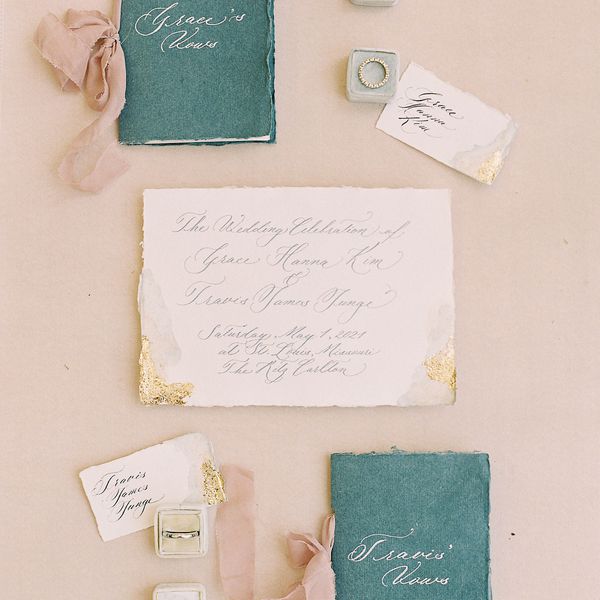 Grace's
Vows
Grace
Hanna
Kim
The Wedding Celebration of
Grace Hanna Kim
&
Travis James Junge
Saturday, May 1, 2021
at St. Louis, Missouri
The Ritz Carlton
Travis
James
Junge
Travis'
Vows